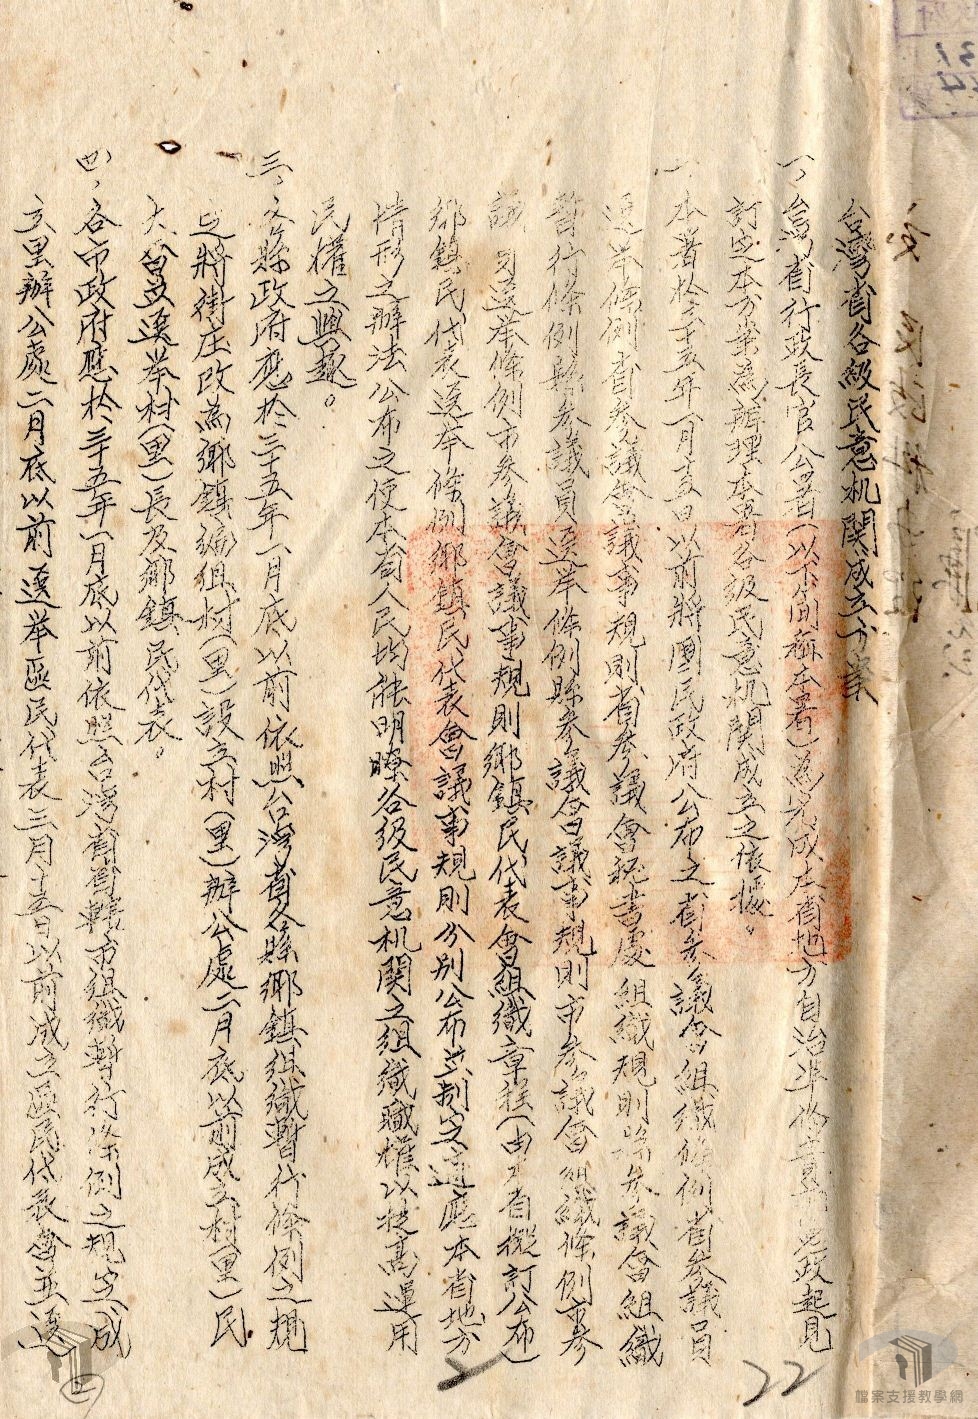 台灣省各級民意机関成立方案
一、台灣省行政長官公署(以下簡稱本署)為完成本省地方自治準俻憲政起見
訂定本方案為辦理本署各級民意机関成立之依據。
二、本署於三十五年一月十五日以前將國民政府公布之省参議會組織條例省参議員
選举條例省参議會議事規則省参議會秘書處組織規則縣参議會組織
暫行條例縣参議員選举條例縣参議會議事規則市参議會組織條例市参
議員選举條例市参議會議事規則鄉鎮民代表會組織章程(由本省擬訂公布)
鄉鎮民代表選举條例鄉鎮民代表會議事規則分別公布並制定適應本省地方
情形之辦法公布之使本省人民均能明瞭各級民意机関之組織職權以提高運用
民權之興趣。
三、各縣政府應於三十五年一月底以前依照台灣省各縣鄉鎮組織暫行條例之規
定將街庄改為鄉鎮編組村(里)設立村(里)辦公處二月底以前成立村(里)民
大會並選举村(里)長及鄉鎮民代表。
四、各市政府應於三十五年一月底以前依照台灣省省轄市組織暫行條例之規定成
立里辦公處二月底以前選举區民代表三月十五日以前成立區民代表會並選
22
檔案支援教學網